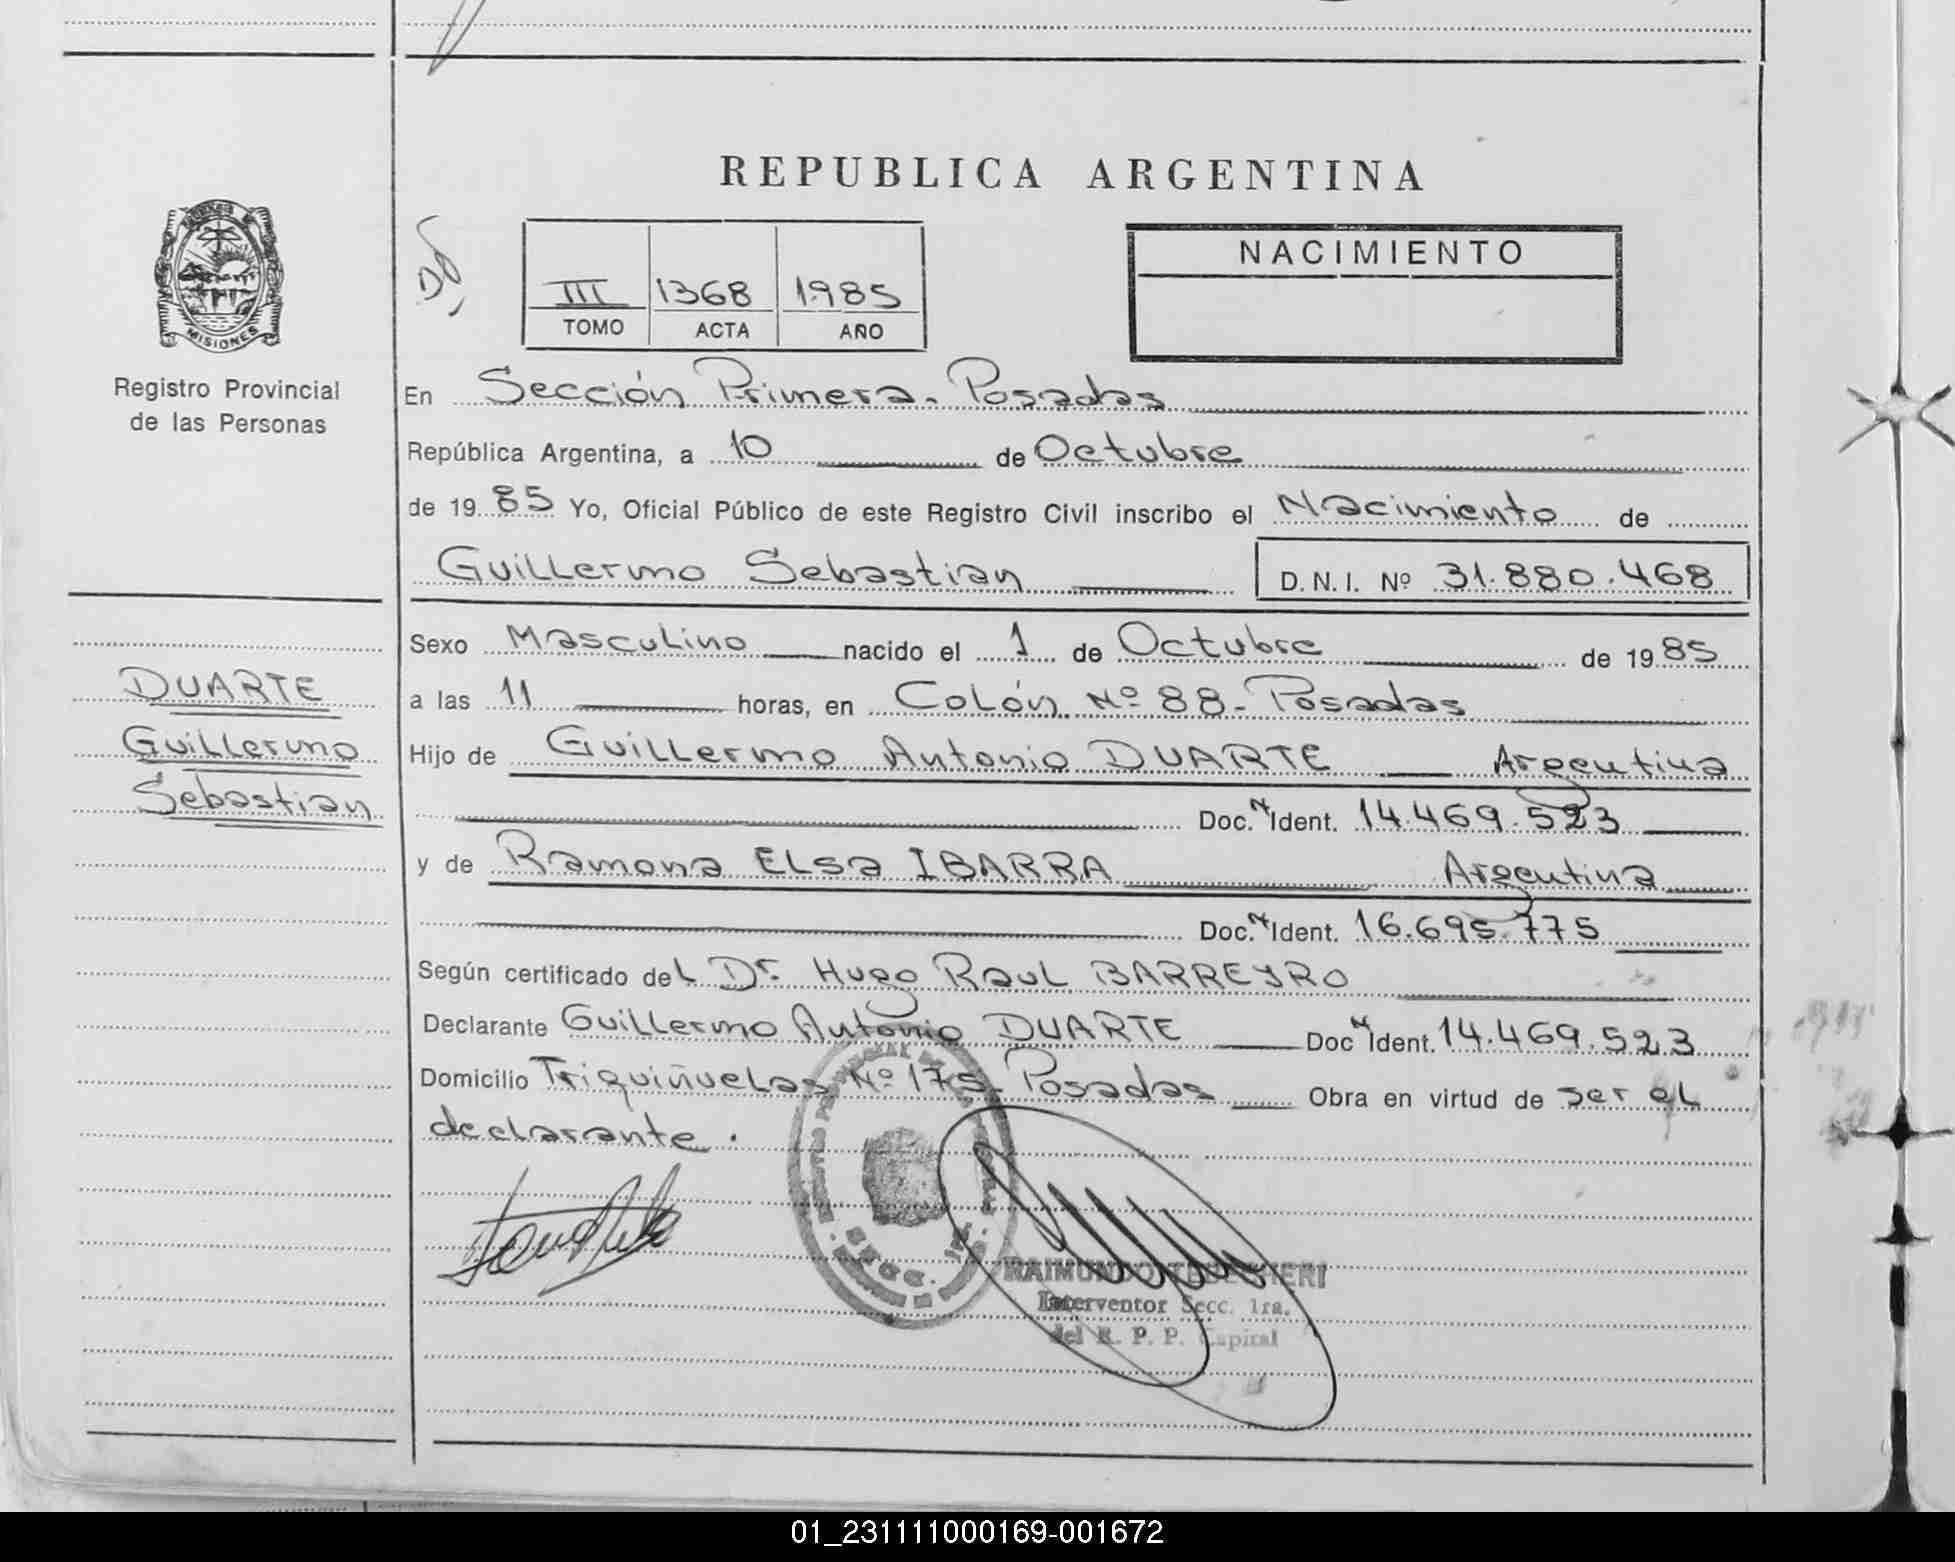 REPUBLICA ARGENTINA
MISIONES
Registro Provincial
de las Personas
III 1368 1985
TOMO ACTA AÑO
NACIMIENTO
En Sección Primera. Posadas
República Argentina, a 10 de Octubre
de 1985 Yo, Oficial Público de este Registro Civil inscribo el Nacimiento de
Guillermo Sebastian D.N.I. Nº 31.880.468
Sexo Masculino nacido el 1 de Octubre de 1985
a las 11 horas, en Colón Nº 88- Posadas
Hijo de Guillermo Antonio DUARTE Argentina
Doc. N Ident. 14.469.523
y de Ramona ELSa IBARRA Argentina
Doc. N Ident. 16.695.775
Según certificado del Dr. Hugo Raul BARREYRO
Declarante Guillermo Antonio DUARTE Doc N Ident. 14.469.523
Domicilio Triquiñuelas Nº 175- Posadas Obra en virtud de ser el
declarante.
DUARTE
Guillermo
Sebastian
RAIMUNDO
Interventor Secc. 1ra.
del R. P. P. Capital
01_231111000169-001672